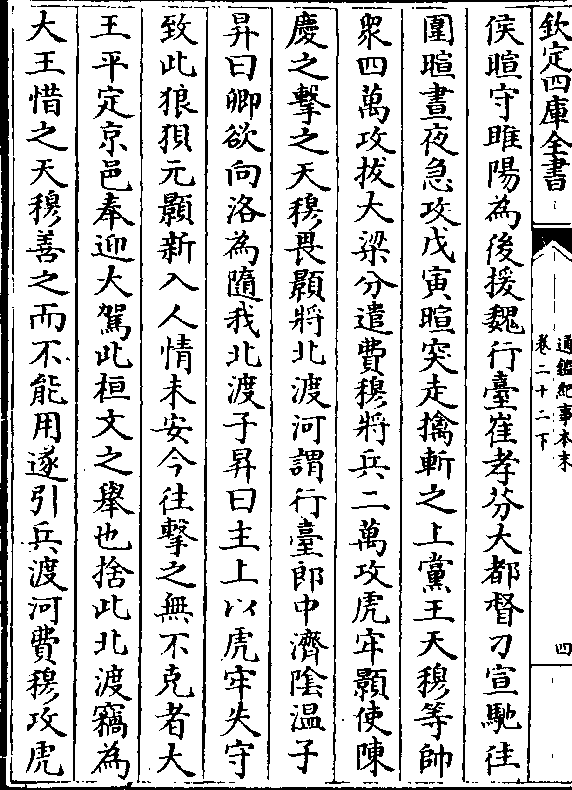 欽定四庫全書
通鑑紀事本末
卷二十二下
四
侯暄守睢陽為後援魏行臺崔孝芬大都督刁宣馳往
圍暄晝夜急攻戊寅暄突走擒斬之上黨王天穆等帥
衆四萬攻拔大梁分遣費穆將兵二萬攻虎牢顥使陳
慶之擊之天穆畏顥將北渡河謂行臺郎中濟陰温子
昇曰卿欲向洛為隨我北渡子昇曰主上以虎牢失守
致此狼狽元顥新入人情未安今往擊之無不克者大
王平定京邑奉迎大駕此桓文之舉也捨此北渡竊為
大王惜之天穆善之而不能用遂引兵渡河費穆攻虎